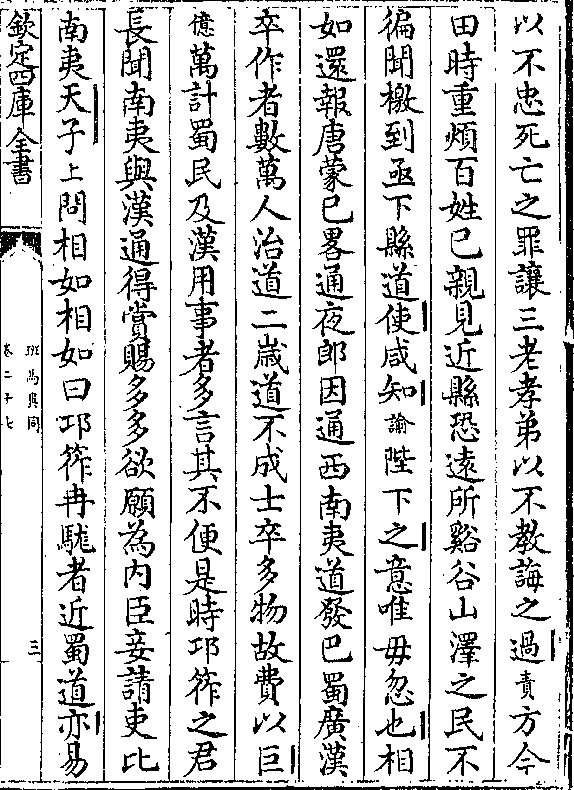 以不忠死亡之罪讓三老孝弟以不教誨之過責方今
田時重煩百姓已親見近縣恐遠所谿谷山澤之民不
徧聞檄到亟下縣道使咸知諭陛下之意唯毋忽也相
如還報唐蒙已畧通夜郎因通西南夷道發巴蜀廣漢
卒作者數萬人治道二嵗道不成士卒多物故費以巨
億萬計蜀民及漢用事者多言其不便是時卭筰之君
長聞南夷與漢通得賞賜多多欲願為内臣妾請吏比
南夷天子上問相如相如曰卭筰冉駹者近蜀道亦易
欽定四庫全書
班馬異同
卷二十七
三